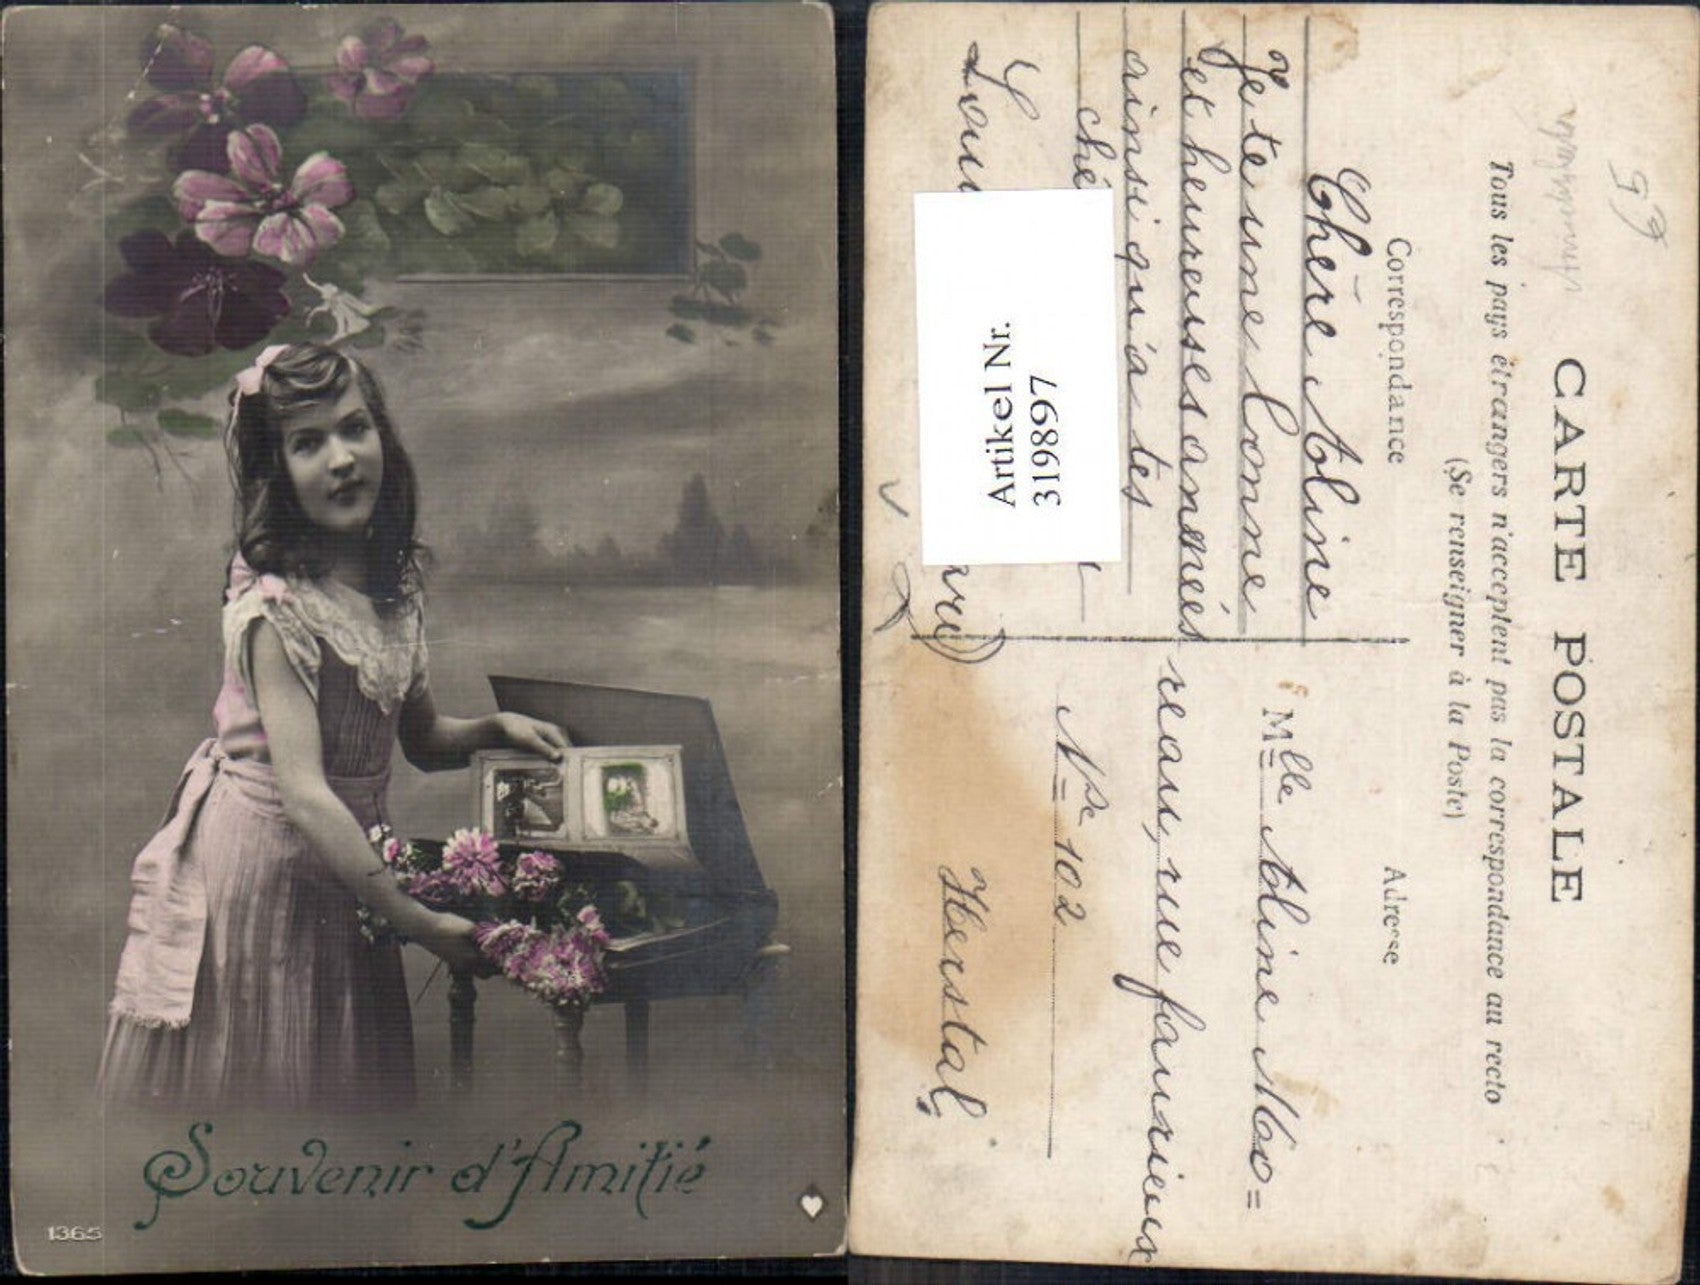 Souvenir d'Amitié
1365
CARTE POSTALE
Tous les pays étrangers n'acceptent pas la correspondance au recto
(Se renseigner à la Poste)
Correspondance
Chère Aline
Je te une bonne
et heureuses années
ainsi qu'a tes
ché
Artikel Nr.
319897
Adresse
Mlle Aline Mo=
reau, rue faurieux
102
Herstal